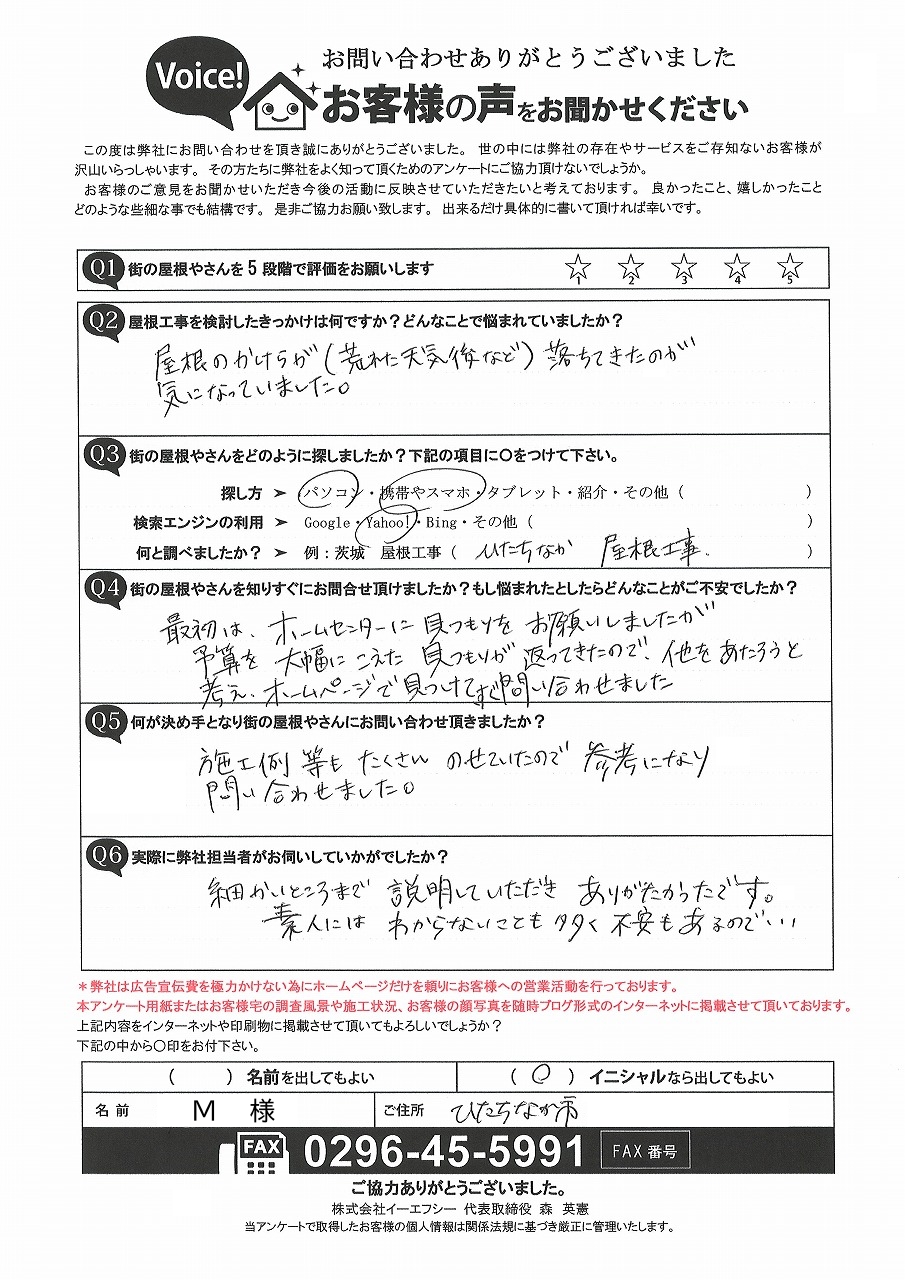 Voice!
お問い合わせありがとうございました
お客様の声をお聞かせください
この度は弊社にお問い合わせを頂き誠にありがとうございました。 世の中には弊社の存在やサービスをご存知ないお客様が
沢山いらっしゃいます。 その方たちに弊社をよく知って頂くためのアンケートにご協力頂けないでしょうか。
お客様のご意見をお聞かせいただき今後の活動に反映させていただきたいと考えております。 良かったこと、嬉しかったこと
どのような些細な事でも結構です。 是非ご協力お願い致します。 出来るだけ具体的に書いて頂ければ幸いです。
Q1 街の屋根やさんを5段階で評価をお願いします ☆1 ☆2 ☆3 ☆4 ☆5
Q2 屋根工事を検討したきっかけは何ですか?どんなことで悩まれていましたか?
屋根のかけらが(荒れた天気後など)落ちてきたのが
気になっていました。
Q3 街の屋根やさんをどのように探しましたか?下記の項目に〇をつけて下さい。
探し方 ➤ パソコン・携帯やスマホ・タブレット・紹介・その他( )
検索エンジンの利用 ➤ Google・Yahoo!・Bing・その他( )
何と調べましたか? ➤ 例:茨城 屋根工事( ひたちなか 屋根工事. )
Q4 街の屋根やさんを知りすぐにお問合せ頂けましたか?もし悩まれたとしたらどんなことがご不安でしたか?
最初は、ホームセンターに見つもりをお願いしましたが
予算を大幅にこえた見つもりが返ってきたので、他をあたろうと
考え、ホームページで見つけてすぐ問い合わせました
Q5 何が決め手となり街の屋根やさんにお問い合わせ頂きましたか?
施工例等もたくさんのせていたので参考になり
問い合わせました。
Q6 実際に弊社担当者がお伺いしていかがでしたか?
細かいところまで説明していただきありがたかったです。
素人にはわからないことも多く不安もあるので...
*弊社は広告宣伝費を極力かけない為にホームページだけを頼りにお客様への営業活動を行っております。
本アンケート用紙またはお客様宅の調査風景や施工状況、お客様の顔写真を随時ブログ形式のインターネットに掲載させて頂いております。
上記内容をインターネットや印刷物に掲載させて頂いてもよろしいでしょうか?
下記の中から〇印をお付下さい。
( )名前を出してもよい (〇)イニシャルなら出してもよい
名前 M 様 ご住所 ひたちなか市
FAX 0296-45-5991 FAX番号
ご協力ありがとうございました。
株式会社イーエフシー 代表取締役 森 英憲
当アンケートで取得したお客様の個人情報は関係法規に基づき厳正に管理いたします。